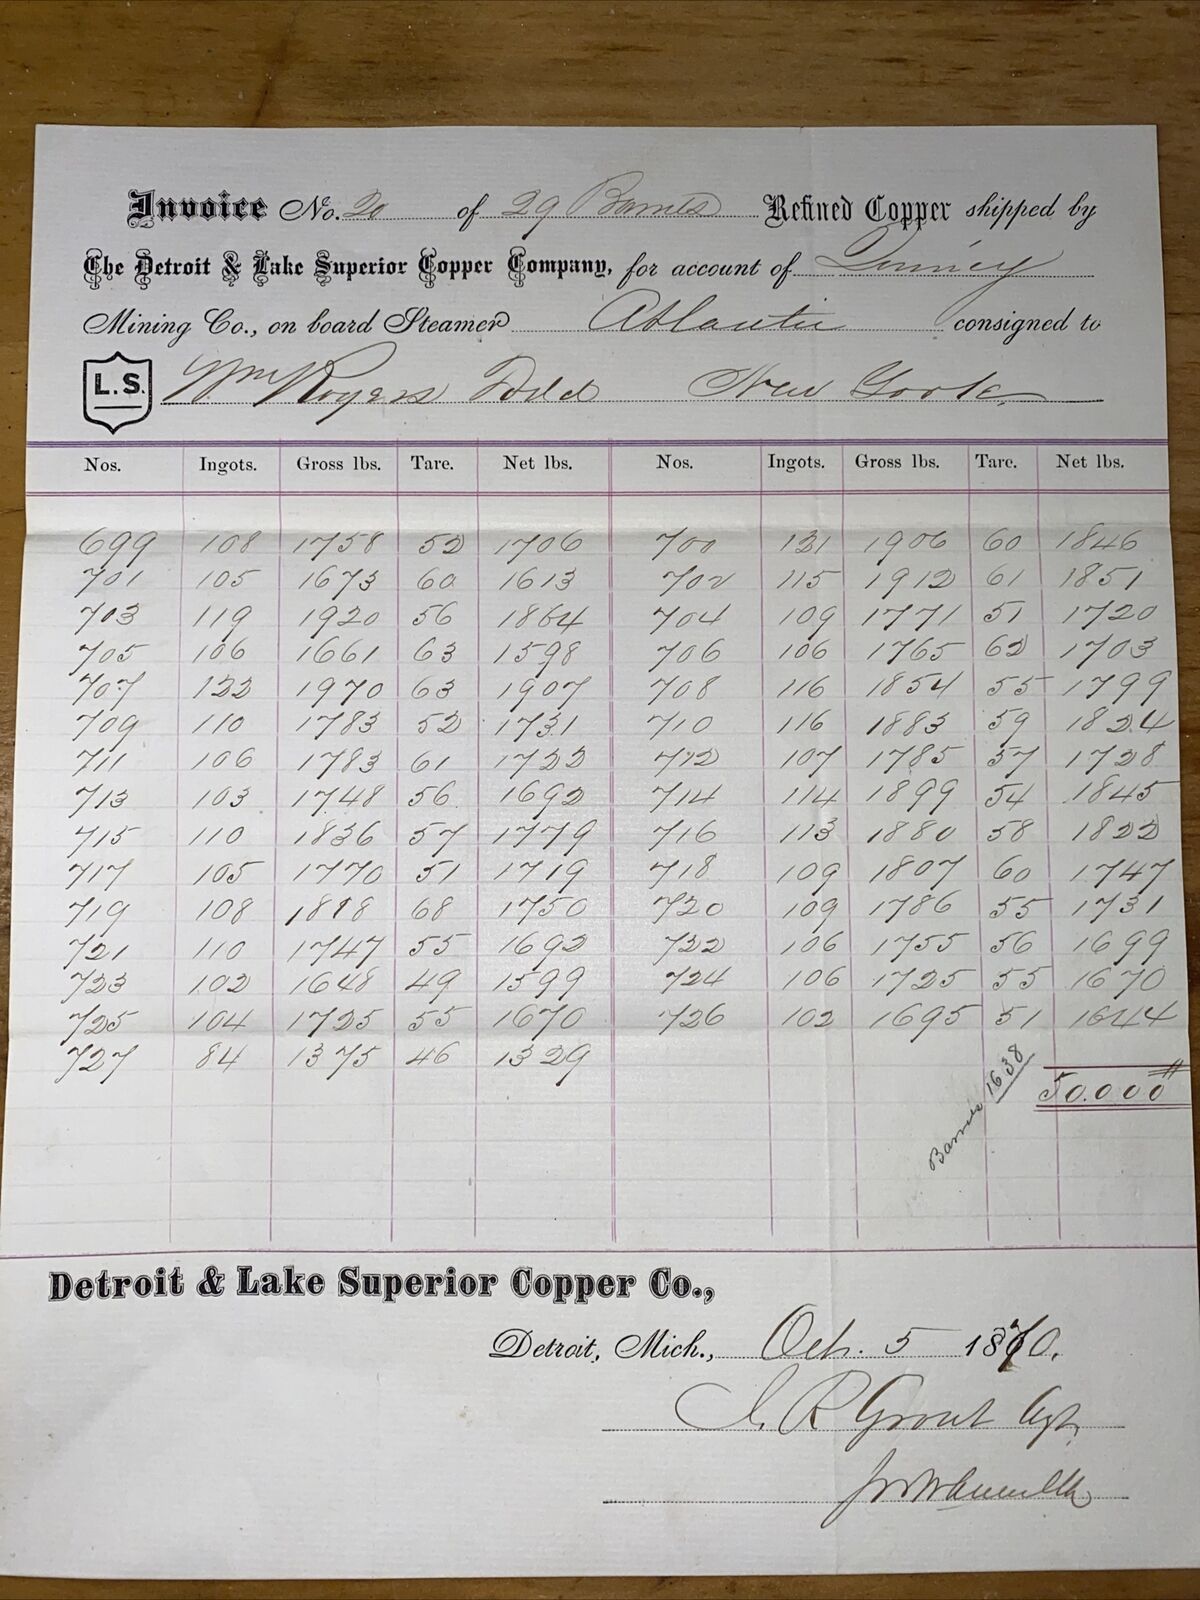 Invoice No. 20 of 29 Barrels Refined Copper shipped by
The Detroit & Lake Superior Copper Company, for account of Quincy
Mining Co., on board Steamer Atlantic consigned to
L.S. Wm Rogers Dodd New York
Nos. Ingots. Gross lbs. Tare. Net lbs. Nos. Ingots. Gross lbs. Tare. Net lbs.
699 108 1758 52 1706 700 121 1906 60 1846
701 105 1673 60 1613 702 115 1912 61 1851
703 119 1920 56 1864 704 109 1771 51 1720
705 106 1661 63 1598 706 106 1765 62 1703
707 122 1970 63 1907 708 116 1854 55 1799
709 110 1783 52 1731 710 116 1883 59 1824
711 106 1783 61 1722 712 107 1785 57 1728
713 103 1748 56 1692 714 114 1899 54 1845
715 110 1836 57 1779 716 113 1880 58 1822
717 105 1770 51 1719 718 109 1807 60 1747
719 108 1818 68 1750 720 109 1786 55 1731
721 110 1747 55 1692 722 106 1755 56 1699
723 102 1648 49 1599 724 106 1725 55 1670
725 104 1725 55 1670 726 102 1695 51 1644
727 84 1375 46 1329
50.000#
Barrels 1638
Detroit & Lake Superior Copper Co.,
Detroit, Mich., Oct. 5 1870.
J. R. Grout Agt.